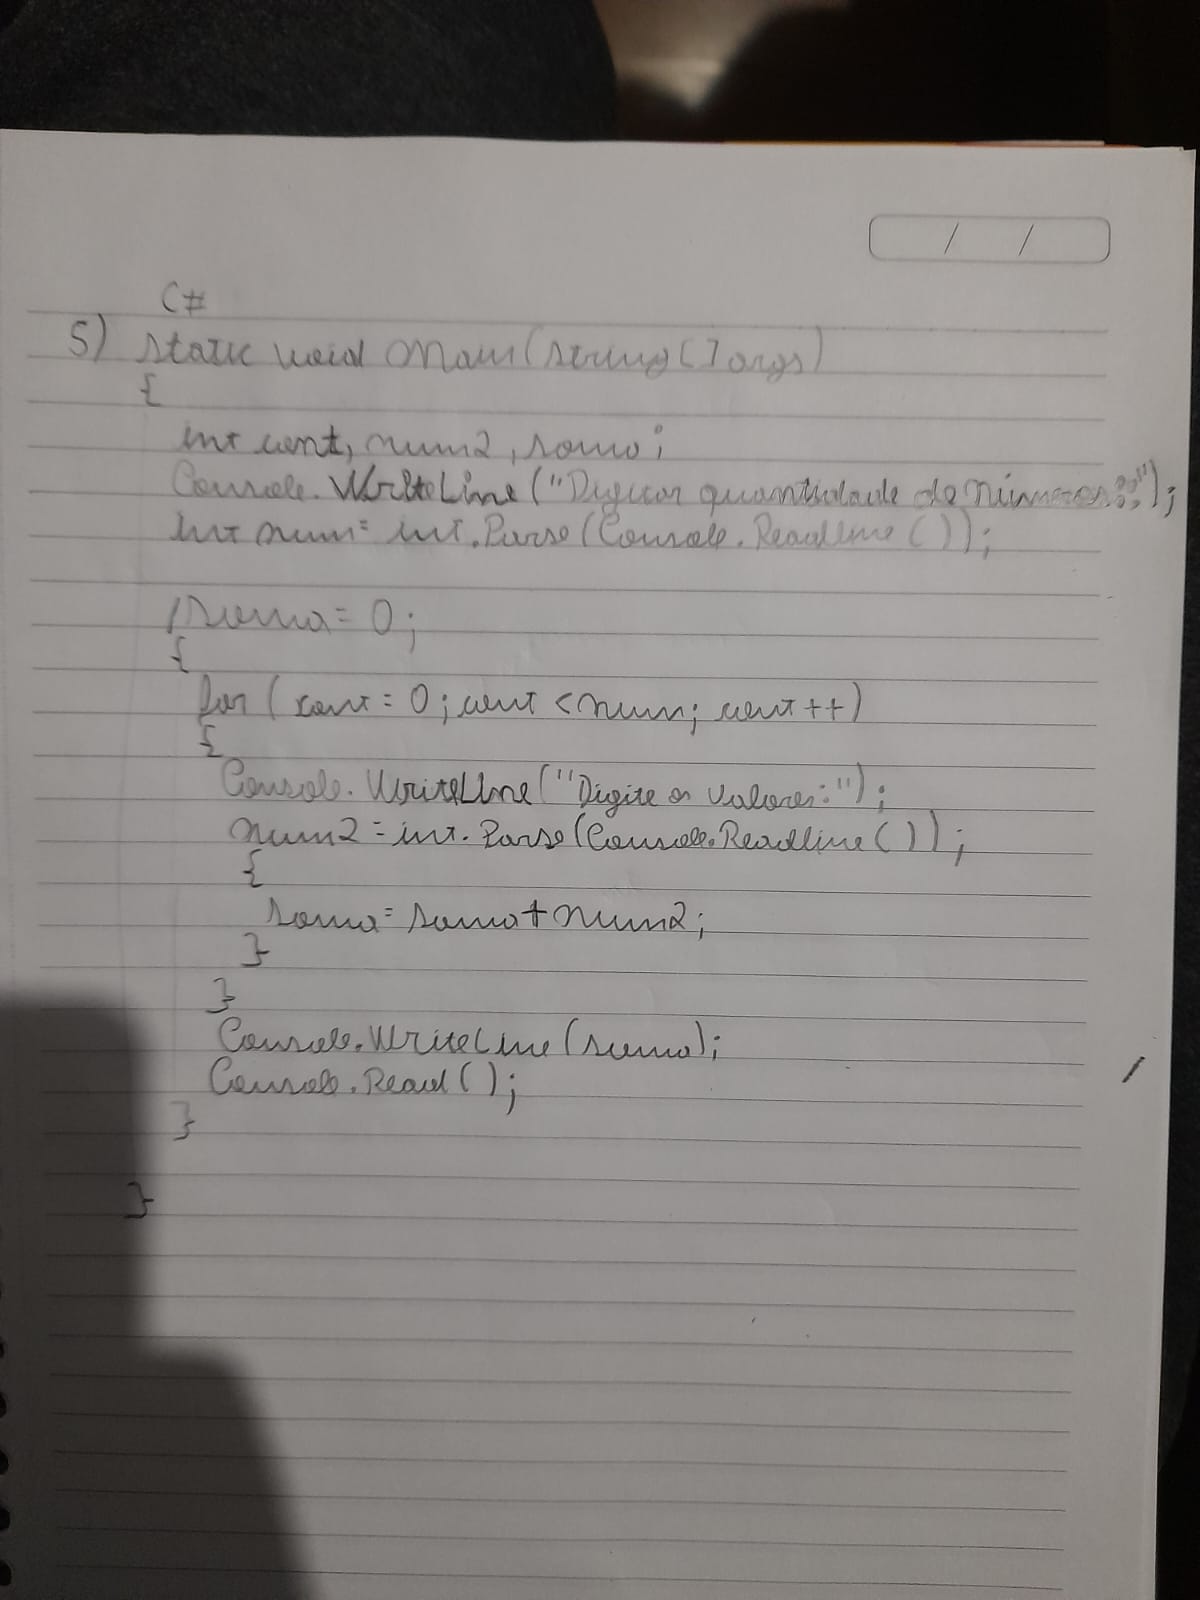 / /
C#
5) static void Main(string[] args)
{
int cont, num2, soma;
Console.WriteLine("Digitar quantidade de números:");
int num = int.Parse(Console.Readline());
soma = 0;
{
for (cont = 0; cont < num; cont++)
{
Console.WriteLine("Digite os valores:");
num2 = int.Parse(Console.Readline());
{
soma = soma + num2;
}
}
Console.WriteLine(soma);
Console.Read();
}
}